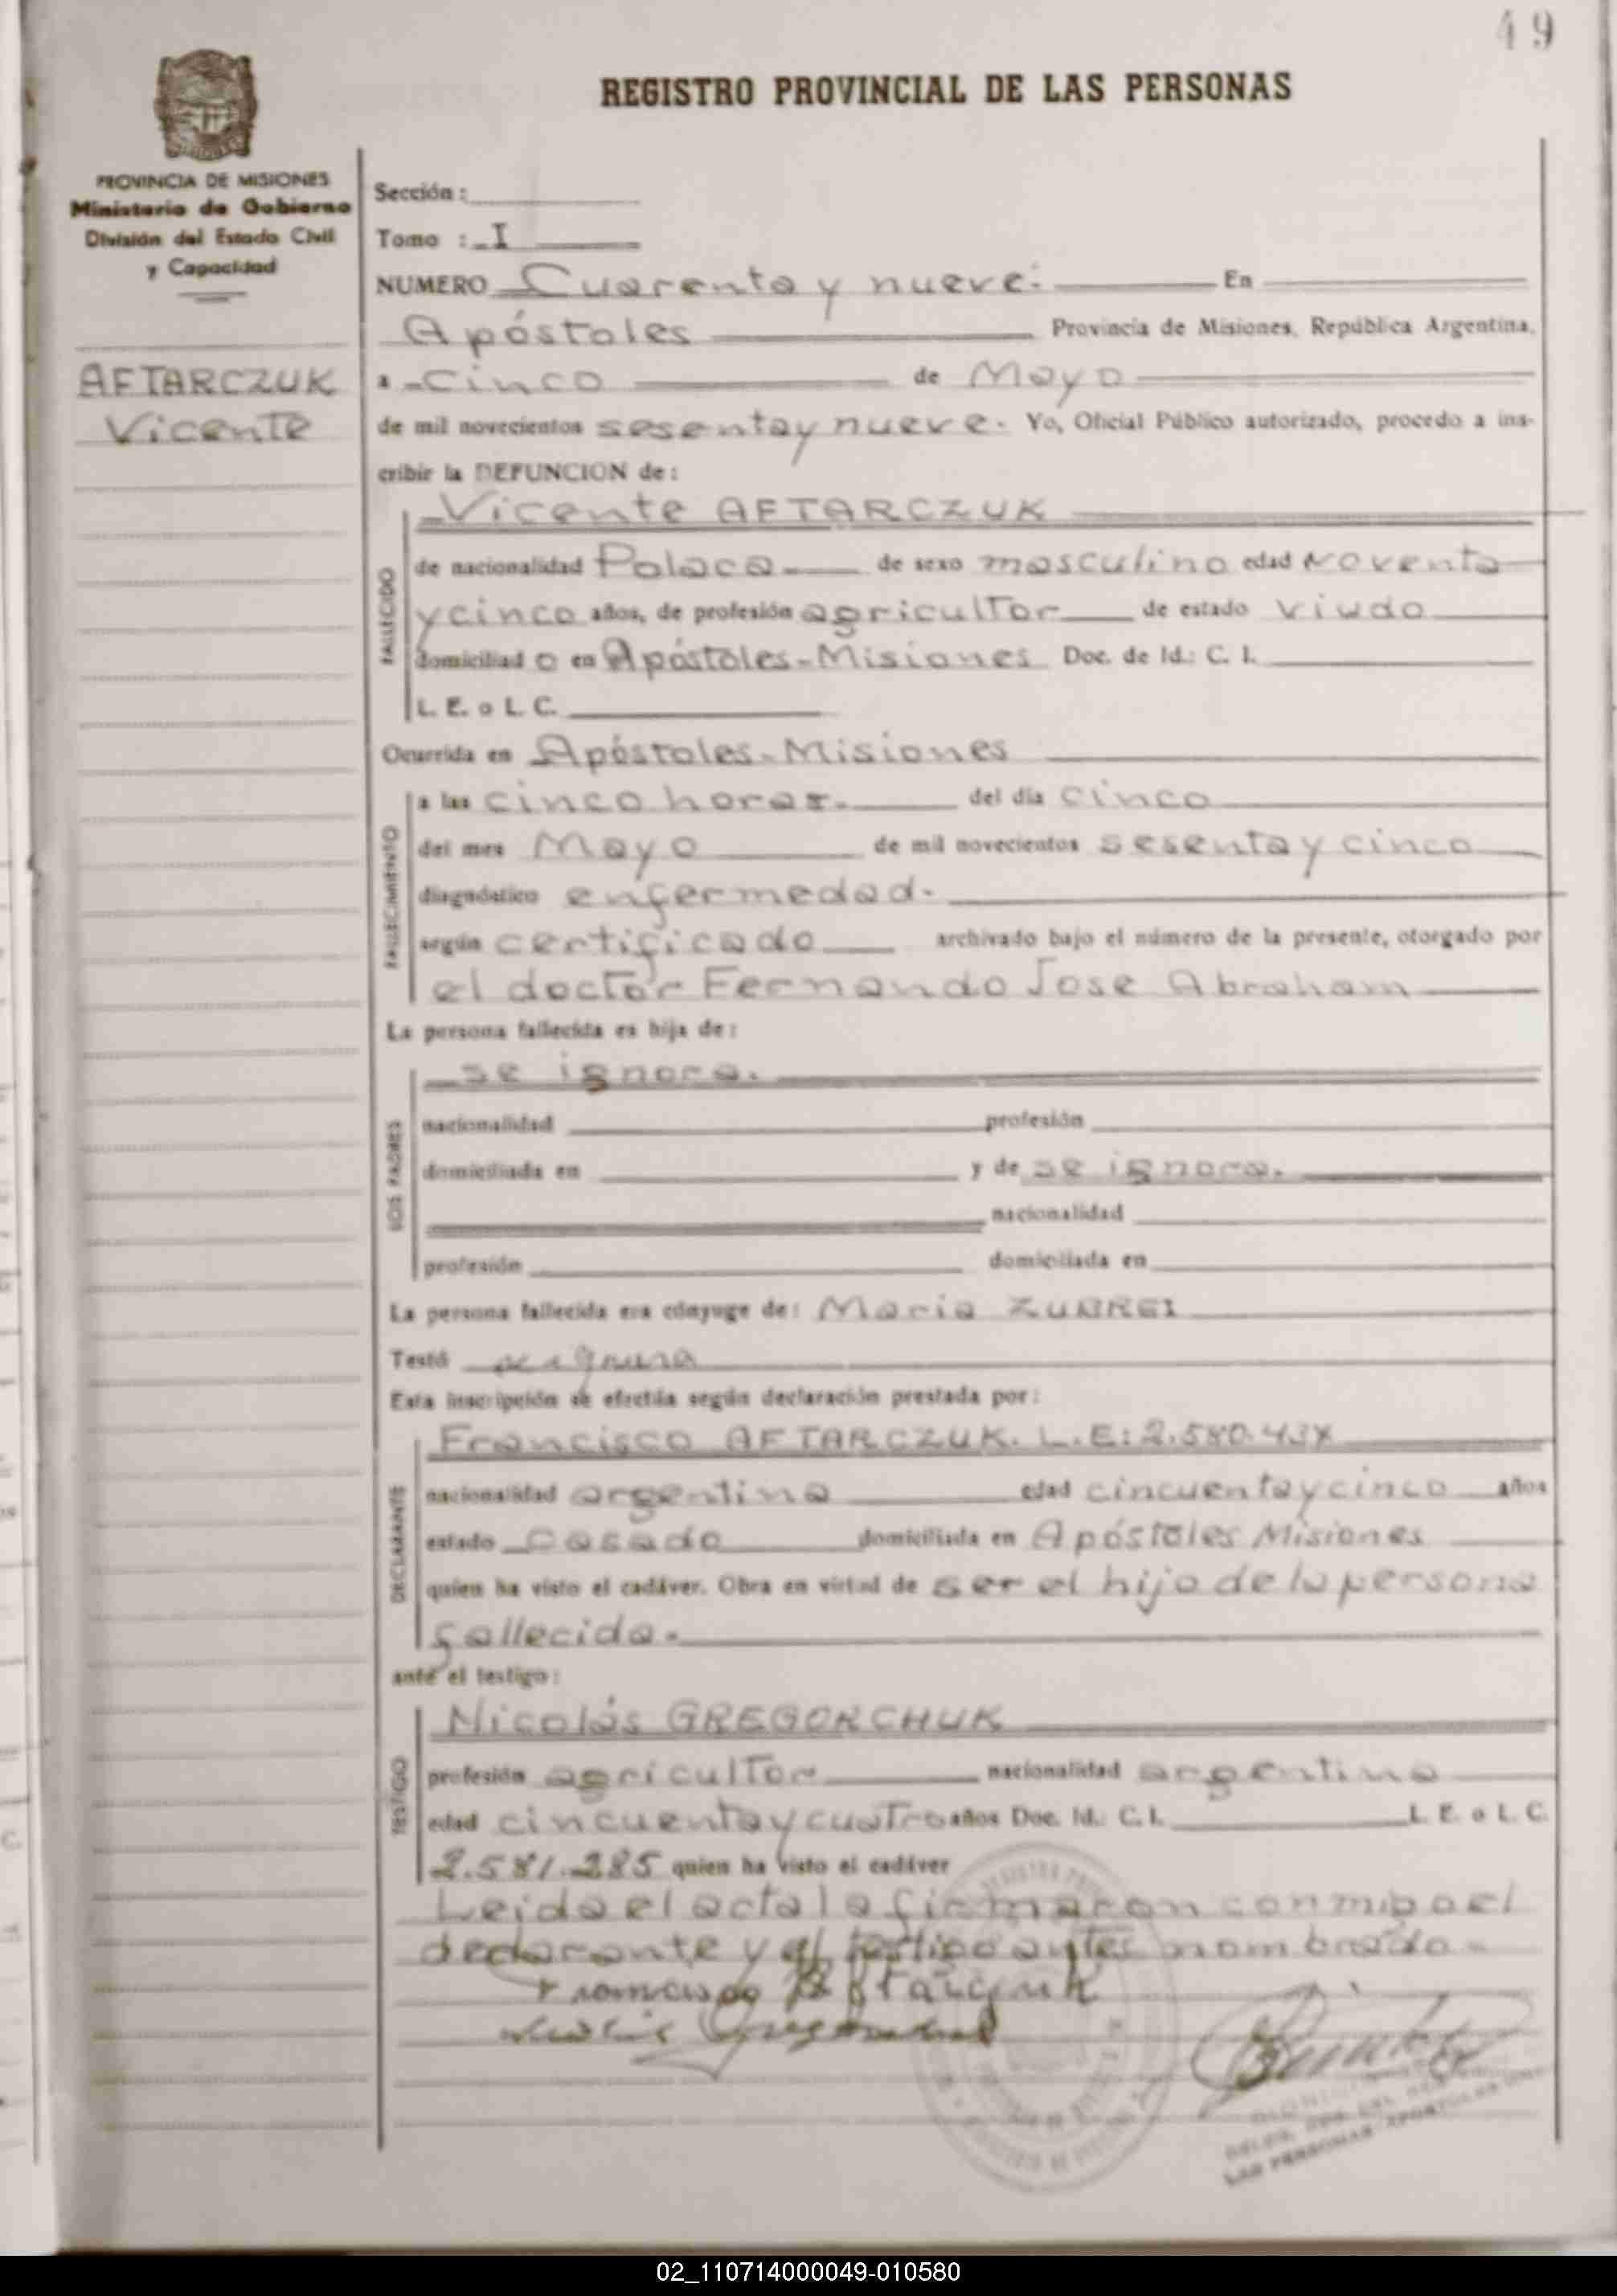 49
REGISTRO PROVINCIAL DE LAS PERSONAS
PROVINCIA DE MISIONES
Ministerio de Gobierno
División del Estado Civil
y Capacidad
AFTARCZUK
Vicente
Sección:
Tomo : I
NUMERO Cuarenta y nueve. En
Apóstoles Provincia de Misiones, República Argentina,
a cinco de Mayo
de mil novecientos sesenta y nueve. Yo, Oficial Público autorizado, procedo a ins-
cribir la DEFUNCION de:
Vicente AFTARCZUK
FALLECIDO
de nacionalidad Polaca de sexo masculino edad noventa
y cinco años, de profesión agricultor de estado viudo
domiciliado en Apóstoles-Misiones Doc. de Id.: C. I.
L. E. o L. C.
Ocurrida en Apóstoles-Misiones
FALLECIMIENTO
a las cinco horas. del día cinco
del mes Mayo de mil novecientos sesenta y cinco
diagnóstico enfermedad.
según certificado archivado bajo el número de la presente, otorgado por
el doctor Fernando Jose Abraham
La persona fallecida es hija de:
LOS PADRES
se ignora.
nacionalidad profesión
domiciliada en y de se ignora.
nacionalidad
profesión domiciliada en
La persona fallecida era cónyuge de: Maria
Testó se ignora
Esta inscripción se efectúa según declaración prestada por:
DECLARANTE
Francisco AFTARCZUK. L.E: 2.580.43
nacionalidad argentina edad cincuenta y cinco años
estado Casado domiciliada en Apóstoles Misiones
quien ha visto el cadáver. Obra en virtud de ser el hijo de la persona
fallecida.
ante el testigo:
TESTIGO
Nicolás GREGORCHUK
profesión agricultor nacionalidad argentina
edad cincuenta y cuatro años Doc. Id.: C. I. L. E. o L. C.
2.581.285 quien ha visto el cadáver
Leida el acta la firmaron conmigo el
declarante y el testigo antes nombrado.
Francisco Aftarczuk
LAS PERSONAS
02_110714000049-010580